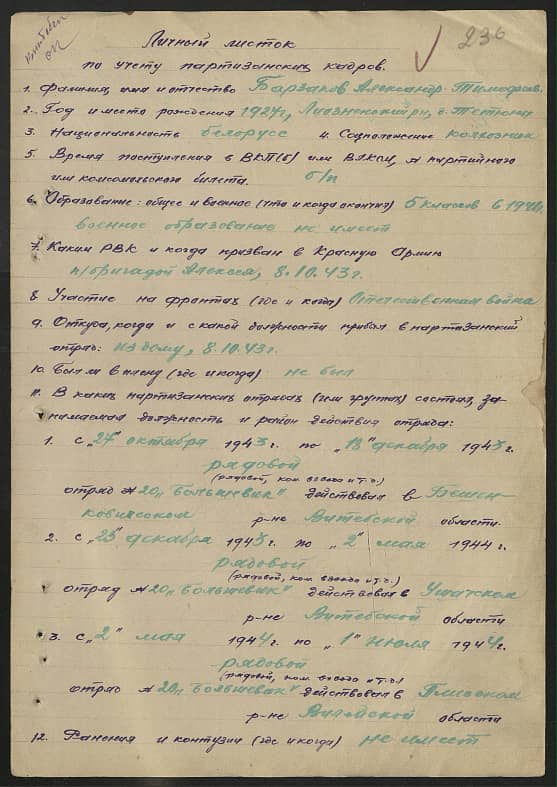 236
Личный листок
по учету партизанских кадров.
1. Фамилия, имя и отчество Барзаков Александр Тимофеев.
2. Год и место рождения 1927г, Лиозненский рн, д. Тетюни
3. Национальность белорусс 4. Соцположение колхозник
5. Время поступления в ВКП(б) или ВЛКСМ, № партийного
или комсомольского билета. б/п
6. Образование: общее и военное (что и когда окончил) 5 классов в 1941г.
военное образование не имеет
7. Каким РВК и когда призван в Красную Армию
п/бригадой Алексея, 8.10.43г.
8. Участие на фронтах (где и когда) Отечественная война
9. Откуда, когда и с какой должности прибыл в партизанский
отряд: из дому, 8.10.43г.
10. Был ли в плену (где и когда) не был
11. В каких партизанских отрядах (или группах) состоял, за-
нимаемая должность и район действия отряда:
1. с „27" октября 1943г. по „18" декабря 1943г.
рядовой
(рядовой, ком. взвода и т.д.)
отряд №20 „Большевик" действовал в Бешен-
ковичском р-не Витебской области.
2. с „23" декабря 1943г. по „2" мая 1944г.
рядовой
(рядовой, ком взвода и т.д.)
отряд №20 „Большевик" действовал в Ушачском
р-не Витебской области
3. с „2" мая 1944г. по „1" июля 1944г.
рядовой
(рядовой, ком. взвода и т.д.)
отряд №20 „Большевик" действовал в Плисском
р-не Вилейской области
12. Ранения и контузии (где и когда) не имеет